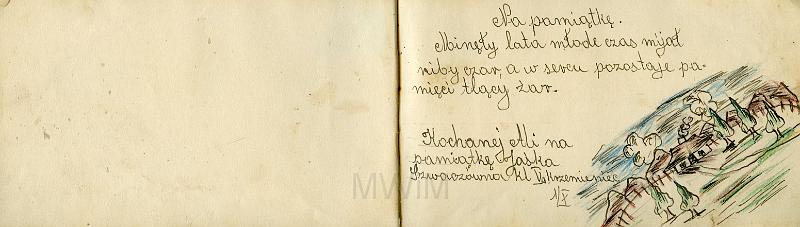 Na pamiątkę.
Minęły lata młode czas mijał
niby czar, a w sercu pozostaje pa-
mięci tlący żar.
Kochanej Ali na
pamiątkę Jaśka
Szwaczówna kl V Krzemieniec
1/X
MWiM